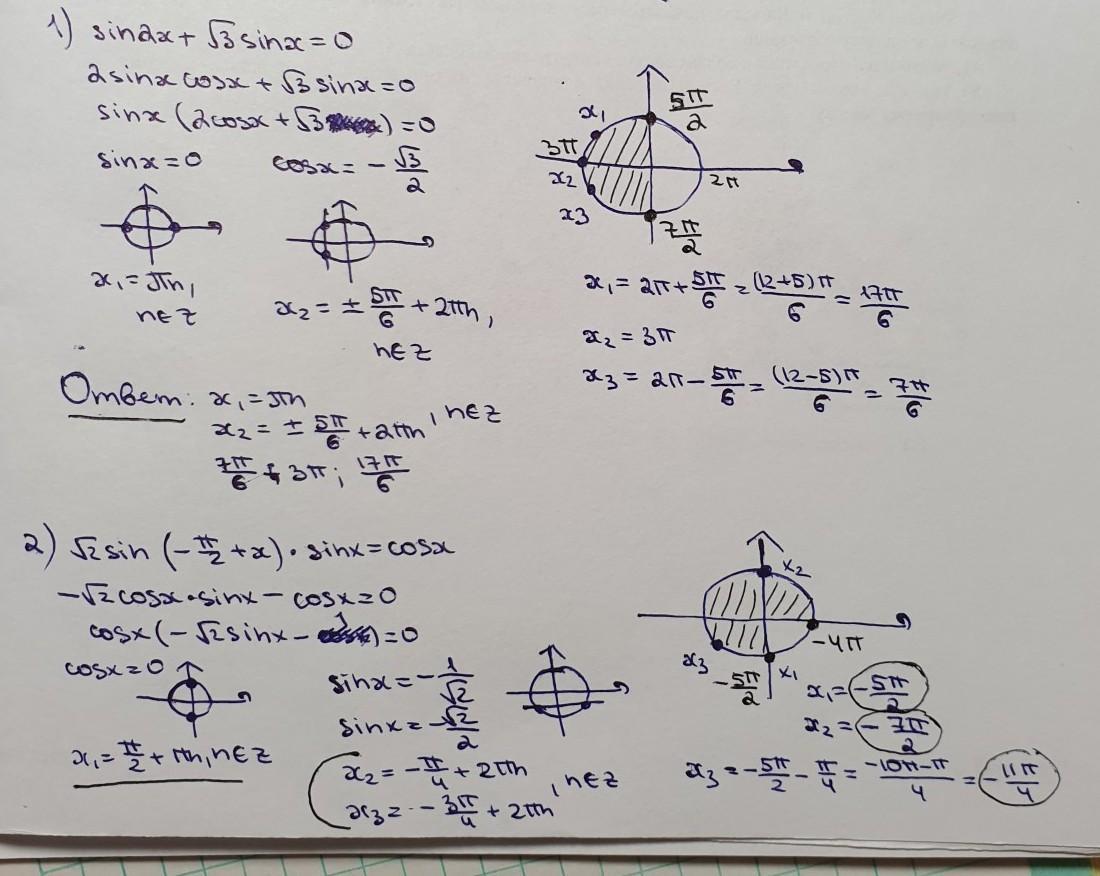 1) sin2x + √3 sinx = 0
2sinx cosx + √3 sinx = 0
sinx (2cosx + √3) = 0
sinx = 0
cosx = - √3/2
x₁ = πn,
n∈Z
x₂ = ± 5π/6 + 2πn,
n∈Z
Ответ: x₁ = πn
x₂ = ± 5π/6 + 2πn , n∈Z
7π/6 ; 3π ; 17π/6
5π/2
x₁
3π
x₂
x3
2π
7π/2
x₁ = 2π + 5π/6 = (12+5)π/6 = 17π/6
x₂ = 3π
x₃ = 2π - 5π/6 = (12-5)π/6 = 7π/6
2) √2 sin (-π/2 + x) · sinx = cosx
-√2 cosx · sinx - cosx = 0
cosx (-√2 sinx - 1) = 0
cosx = 0
x₁ = π/2 + πn, n∈Z
sinx = - 1/√2
sinx = -√2/2
x₂ = -π/4 + 2πn
x₃ = - 3π/4 + 2πn , n∈Z
x₂
-4π
x₃
-5π/2
x₁
x₁ = -5π/2
x₂ = - 7π/2
x₃ = -5π/2 - π/4 = -10π-π/4 = -11π/4